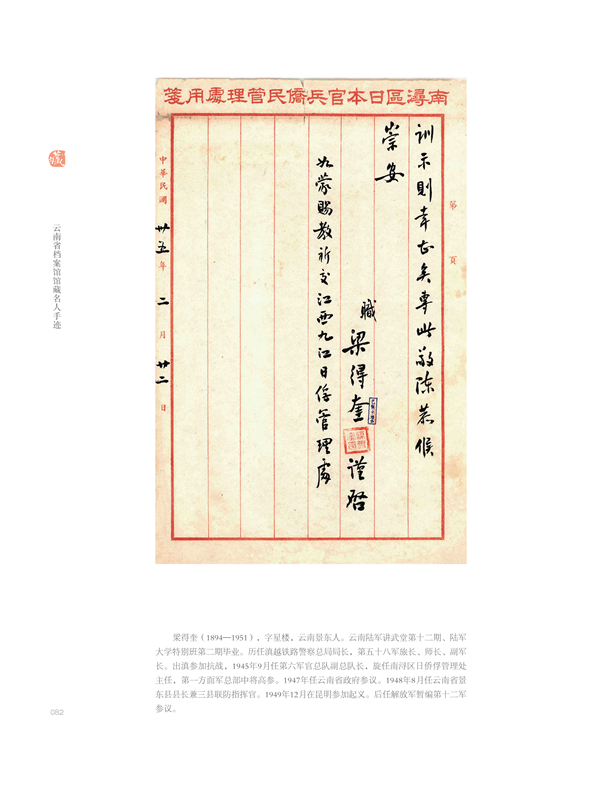 南潯區日本官兵僑民管理處用箋
第 頁
訓示則幸甚矣專此敬陳恭候
崇安
職
梁得奎
謹啓
如蒙賜教祈交江西九江日俘管理處
中華民國卅五年二月廿二日
藏
云南省档案馆馆藏名人手迹
梁得奎（1894—1951），字星楼，云南景东人。云南陆军讲武堂第十二期、陆军
大学特别班第二期毕业。历任滇越铁路警察总局局长，第五十八军旅长、师长、副军
长。出滇参加抗战，1945年9月任第六军官总队副总队长，旋任南浔区日侨俘管理处
主任，第一方面军总部中将高参。1947年任云南省政府参议。1948年8月任云南省景
东县县长兼三县联防指挥官。1949年12月在昆明参加起义。后任解放军暂编第十二军
参议。
082